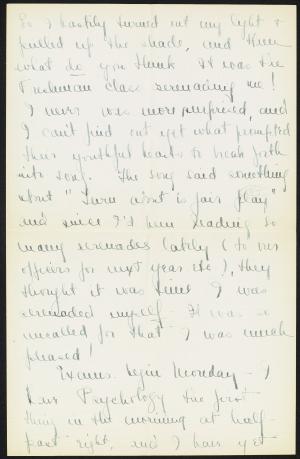 So I hastily turned out my light &
pulled up the shade, and then
what do you think It was the
Freshman class serenading me!
I never was more surprised, and
I can't find out yet what prompted
their youthful hearts to break forth
into song. The song said something
about "Turn about is fair play"
and since I'd been leading so
many serenades lately (to our
officers for next year etc.), they
thought it was time I was
serenaded myself. It was so
uncalled for that I was much
pleased!
Exams begin Monday - I
have Psychology the first
thing in the morning at half-
past eight, and I have yet